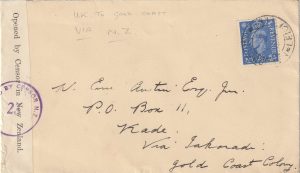 UK TO GOLD COAST
VIA N.Z.
Opened by Censor in New Zealand.
BY CENSOR N.Z.
2
W. Eric Autin Esq. Jnr.
P.O. Box 11,
Kade,
Via Takoradi
Gold Coast Colony.